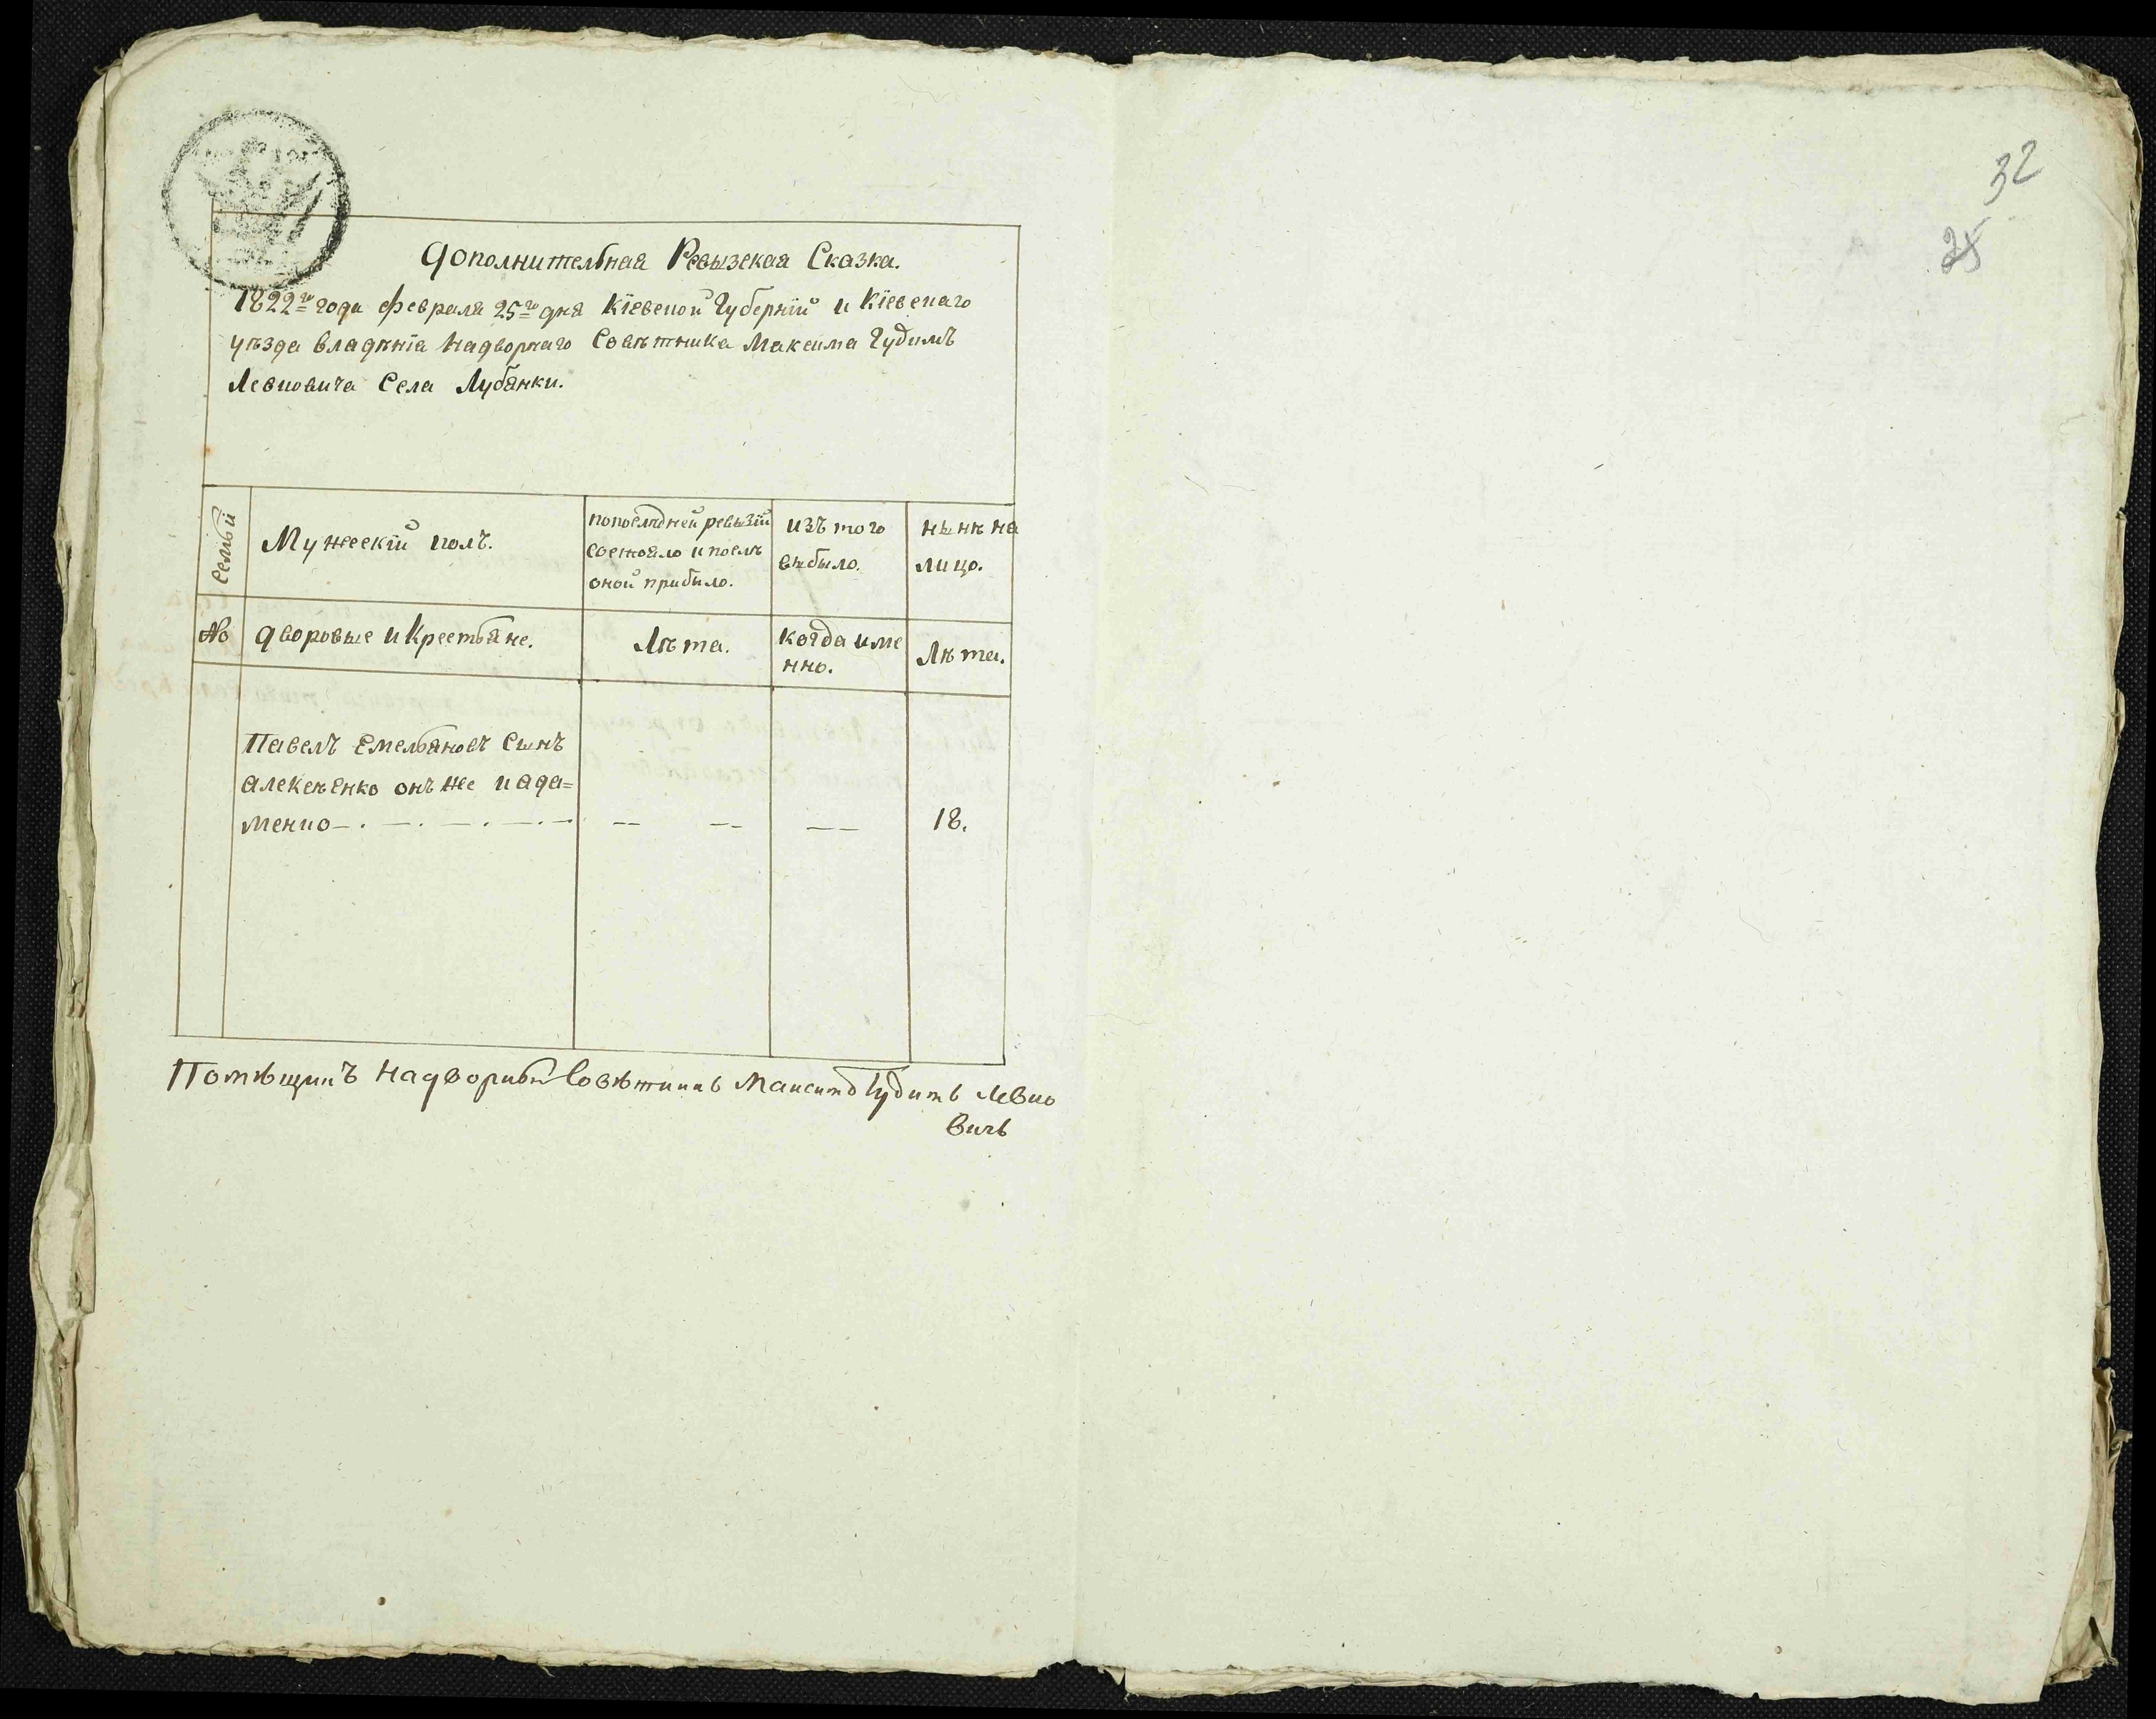 32
25
Дополнительная Ревызская Сказка.
1822го года февраля 25го дня Кіевской Губерніи и Кіевскаго
уѣзда владѣнія Надворнаго Совѣтника Максима Гудимъ
Левковича Села Лубянки.
Семьи
Мужескій полъ.
попослѣдней ревызіи
состояло и послѣ
оной прибыло.
изъ того
выбыло.
нынѣ на
лицо.
№
дворовые и Крестьяне.
Лѣта.
когда име
нно.
Лѣта.
Павелъ Емельяновъ Сынъ
Алексѣенко онъ же и Ада=
менко — . — . — . — . — — — — —
18.
Помѣщикъ Надворный Совѣтникъ Максимъ Гудимъ Левко
вичь